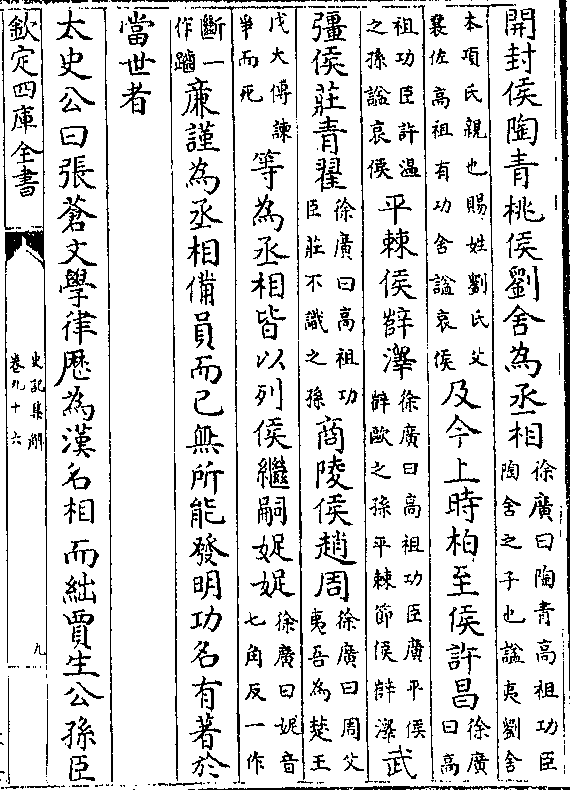 開封侯陶青桃侯劉舍為丞相徐廣曰陶青高祖功臣陶舍之子也諡夷劉舍
本項氏親也賜姓劉氏父襄佐高祖有功舍諡哀侯及今上時柏至侯許昌徐廣曰高
祖功臣許温之孫諡哀侯平棘侯薛澤徐廣曰高祖功臣廣平侯薛歐之孫平棘節侯薛澤武
彊侯莊青翟徐廣曰高祖功臣莊不識之孫商陵侯趙周徐廣曰周父夷吾為楚王
戊大傅諫爭而死等為丞相皆以列侯繼嗣娖娖徐廣曰娖音七角反一作
斷一作躪廉謹為丞相備員而已無所能發明功名有著於
當世者
太史公曰張蒼文學律歷為漢名相而絀賈生公孫臣
欽定四庫全書
史記集解
卷九十六
九